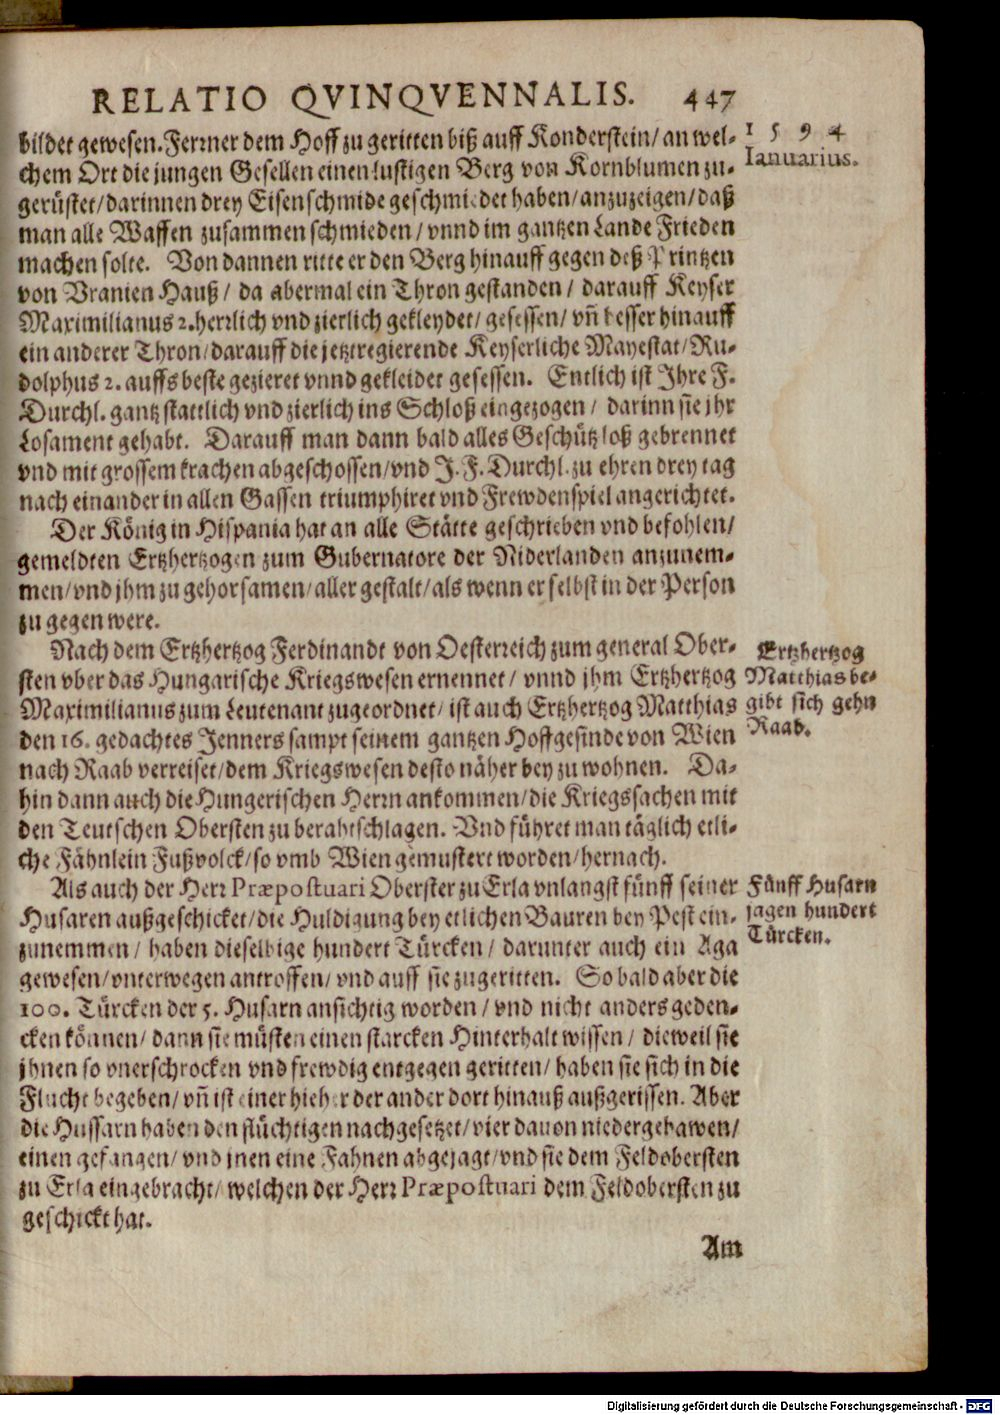 RELATIO QVINQVENNALIS. 447
1 5 9 4
Ianuarius.
bildet gewesen. Ferrner dem Hoff zu geritten biß auff Konderstein/ an wel-
chem Ort die jungen Gesellen einen lustigen Berg von Kornblumen zu-
gerüstet/ darinnen drey Eisenschmide geschmiedet haben/ anzuzeigen/ daß
man alle Waffen zusammen schmieden/ vnnd im gantzen Lande Frieden
machen solte. Von dannen ritte er den Berg hinauff gegen deß Printzen
von Vranien Hauß/ da abermal ein Thron gestanden/ darauff Keyser
Maximilianus 2. herrlich vnd zierlich gekleydet/ gesessen/ vñ besser hinauff
ein anderer Thron/ darauff die jetztregierende Keyserliche Mayestat/ Ru-
dolphus 2. auffs beste gezieret vnnd gekleidet gesessen. Entlich ist Ihre F.
Durchl. gantz stattlich vnd zierlich ins Schloß eingezogen/ darinn sie jhr
Losament gehabt. Darauff man dann bald alles Geschütz loß gebrennet
vnd mit grossem krachen abgeschossen/ vnd J. F. Durchl. zu ehren drey tag
nach einander in allen Gassen triumphiret vnd Frewdenspiel angerichtet.
Der König in Hispania hat an alle Stätte geschrieben vnd befohlen/
gemeldten Ertzhertzogen zum Gubernatore der Niderlanden anzunem-
men/ vnd jhm zu gehorsamen/ aller gestalt/ als wenn er selbst in der Person
zu gegen were.
Nach dem Ertzhertzog Ferdinandt von Oesterreich zum general Ober-
sten vber das Hungarische Kriegswesen ernennet/ vnnd jhm Ertzhertzog
Maximilianus zum Leutenant zugeordnet/ ist auch Ertzhertzog Matthias
den 16. gedachtes Jenners sampt seinem gantzen Hoffgesinde von Wien
nach Raab verreiset/ dem Kriegswesen desto näher bey zu wohnen. Da-
hin dann auch die Hungerischen Herrn ankommen/ die Kriegssachen mit
den Teutschen Obersten zu berahtschlagen. Vnd führet man täglich etli-
che Fähnlein Fußvolck/ so vmb Wien gemustert worden/ hernach.
Ertzhertzog
Matthias be-
gibt sich gehn
Raab.
Als auch der Herr Præpostuari Oberster zu Erla vnlangst fünff seiner
Husaren außgeschicket/ die Huldigung bey etlichen Bauren bey Pest ein-
zunemmen/ haben dieselbige hundert Türcken/ darunter auch ein Aga
gewesen/ vnterwegen antroffen/ vnd auff sie zugeritten. So bald aber die
100. Türcken der 5. Husarn ansichtig worden/ vnd nicht anders geden-
cken können/ dann sie müsten einen starcken Hinterhalt wissen/ dieweil sie
jhnen so vnerschrocken vnd frewdig entgegen geritten/ haben sie sich in die
Flucht begeben/ vñ ist einer hieher der ander dort hinauß außgerissen. Aber
die Hussarn haben den flüchtigen nachgesetzet/ vier dauon niedergehawen/
einen gefangen/ vnd jnen eine Fahnen abgejagt/ vnd sie dem Feldobersten
zu Erla eingebracht/ welchen der Herr Præpostuari dem Feldobersten zu
geschickt hat.
Fünff Husarn
jagen hundert
Türcken.
Am
Digitalisierung gefördert durch die Deutsche Forschungsgemeinschaft - DFG